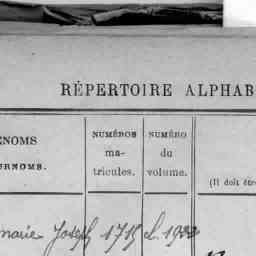 RÉPERTOIRE ALPHAB
ENOMS
URNOMS.
NUMÉROS
ma-
tricules.
NUMÉRO
du
volume.
(Il doit être
marie Joseph 1715